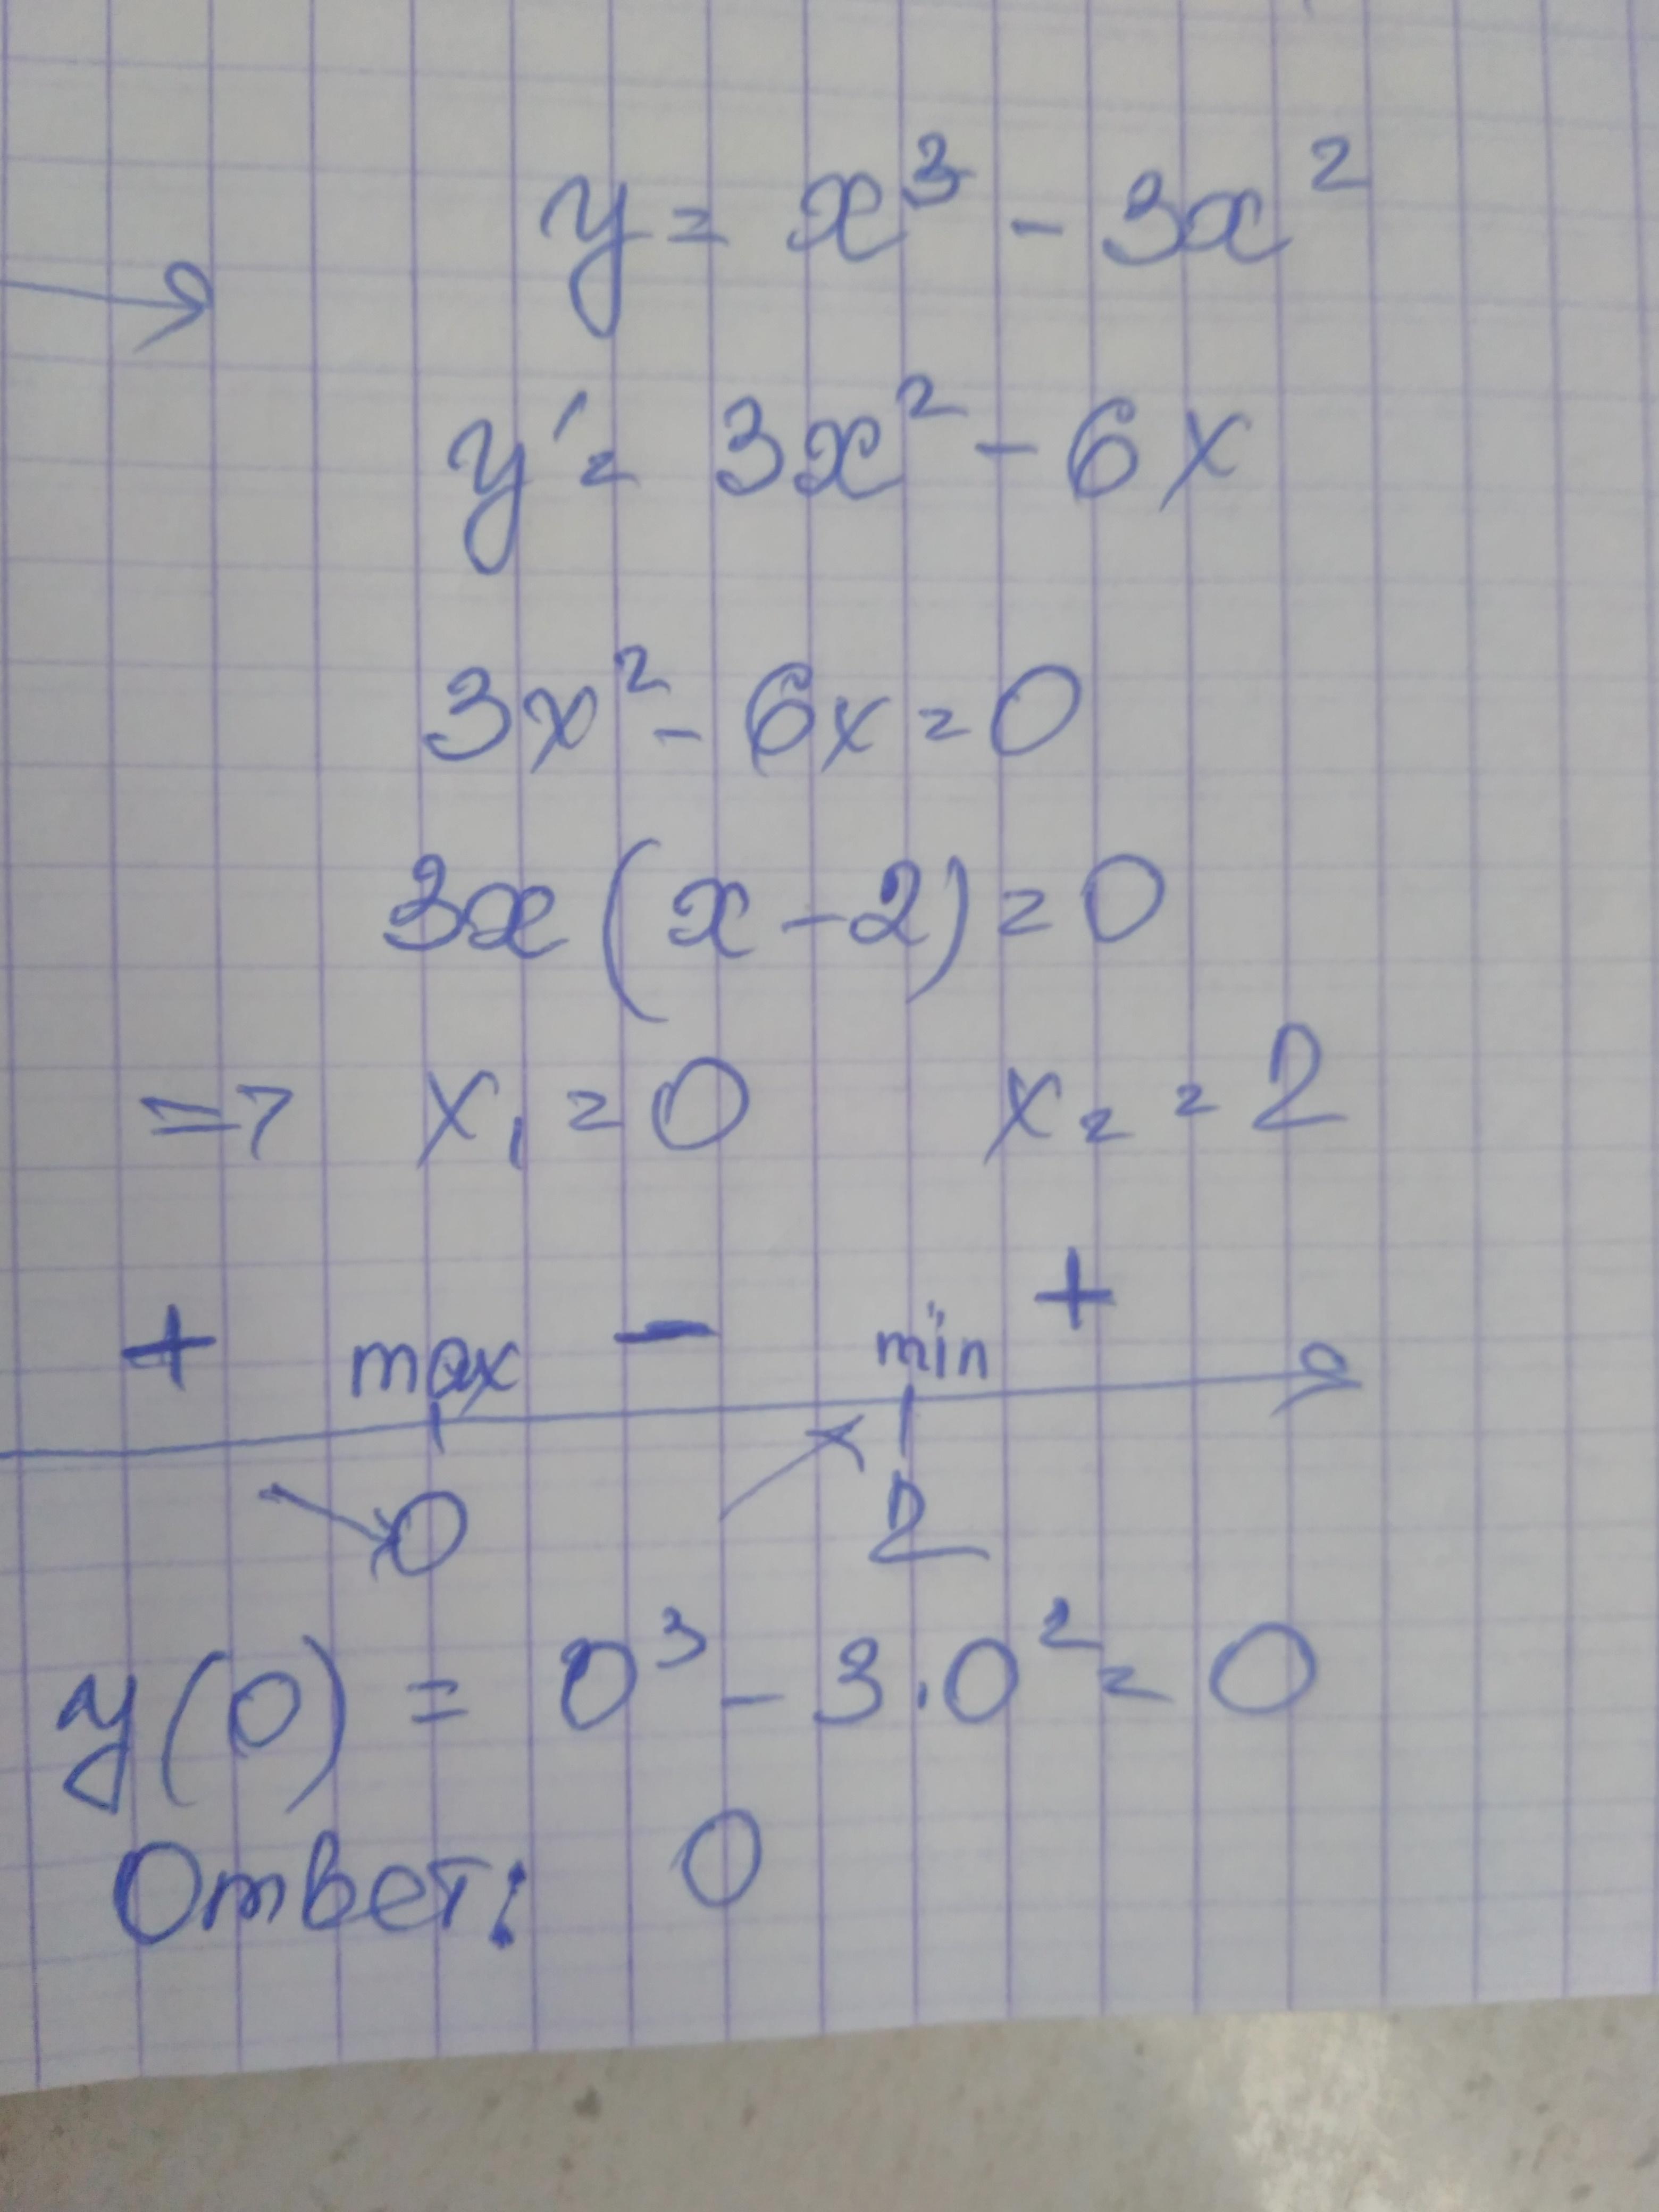 y = x³ - 3x²
y' = 3x² - 6x
3x² - 6x = 0
3x (x - 2) = 0
=> x₁ = 0 x₂ = 2
+ max - min +
0 2
y(0) = 0³ - 3·0² = 0
Ответ: 0